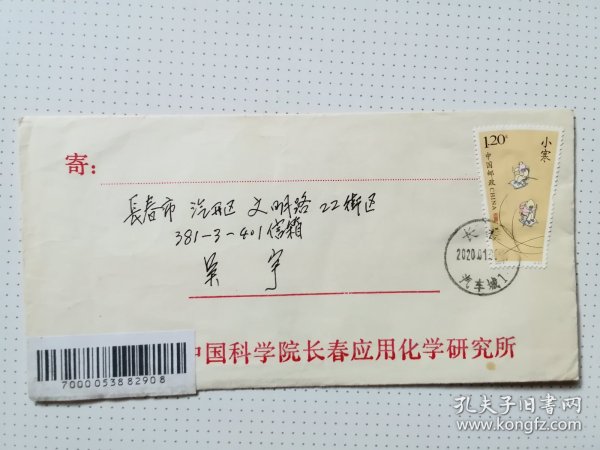 寄：
长春市 汽开区 文明路 22街区
381-3-401信箱
吴 宇
中国科学院长春应用化学研究所
7000053882908
1.20元
小寒
中国邮政 CHINA
长春
2020.01
汽车城1
孔夫子旧书网
www.kongfz.com